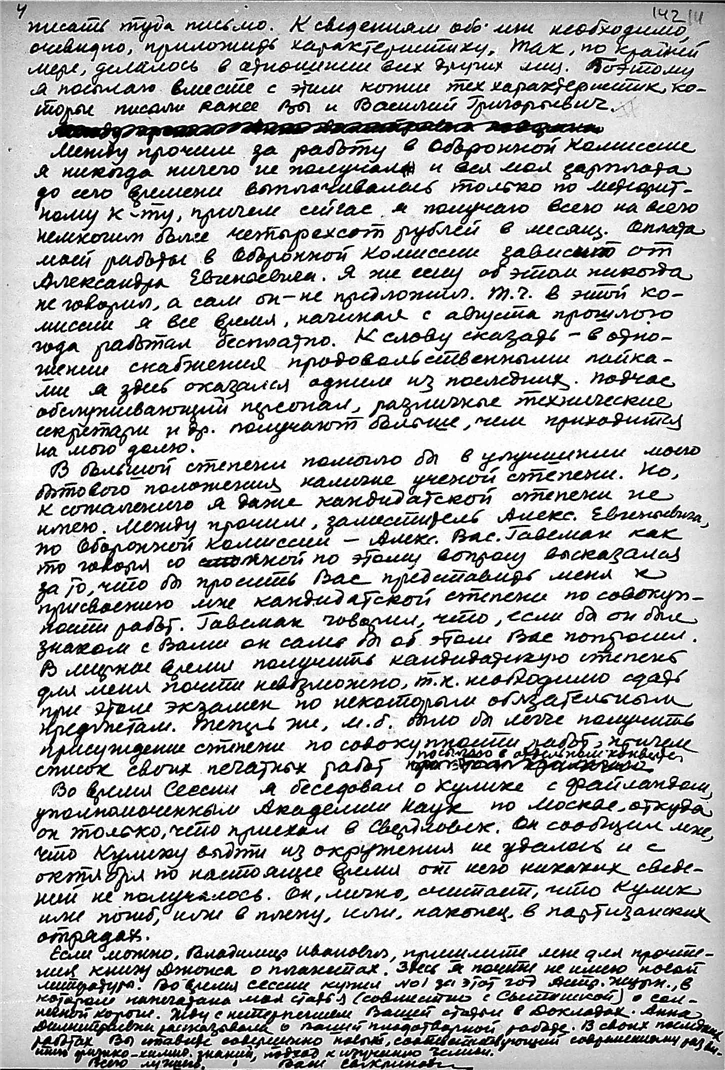 4 142 111
писать туда письмо. К сведениям обо мне необходимо,
очевидно, приложить характеристику. Так, по крайней
мере, делалось в отношении всех других лиц. Поэтому
я посылаю вместе с этим копии тех характеристик, ко-
торые писали ранее Вы и Василий Григорьевич.
Между прочим за работу в Оборонной Комиссии
я никогда ничего не получал и вся моя зарплата
до сего времени выплачивалась только по метеорит-
ному к-ту, причем сейчас я получаю всего на всего
немногим более четырехсот рублей в месяц. Оплата
моей работы в Оборонной Комиссии зависит от
Александра Евгеньевича. Я же ему об этом никогда
не говорил, а сам он не предложил. Т.ч. в этой ко-
миссии я все время, начиная с августа прошлого
года работал бесплатно. К слову сказать – в отно-
шении снабжения продовольственными пайка-
ми я здесь оказался одним из последних. Подчас
обслуживающий персонал, различные технические
секретари и др. получают больше, чем приходится
на мою долю.
В большой степени помогло бы в улучшении моего
бытового положения наличие ученой степени. Но,
к сожалению я даже кандидатской степени не
имею. Между прочим, заместитель Алекс. Евгеньевича,
по Оборонной Комиссии – Алекс. Вас. Гавеман как
то говоря со мной по этому вопросу высказался
за то, что бы просить Вас представить меня к
присвоению мне кандидатской степени по совокуп-
ности работ. Гавеман говорил, что, если бы он был
знаком с Вами он сам бы об этом Вас попросил.
В мирное время получить кандидатскую степень
для меня почти невозможно, т.к. необходимо сдать
при этом экзамен по некоторым обязательным
предметам. Теперь же, м.б. было бы легче получить
присуждение степени по совокупности работ, причем
список своих печатных работ посылаю в отдельном конверте.
Во время Сессии я беседовал о Кулике с Файландом,
уполномоченным Академии Наук по Москве, откуда
он только, что приехал в Свердловск. Он сообщил мне,
что Кулику выйти из окружения не удалось и с
октября по настоящее время от него никаких сведе-
ний не получалось. Он, лично, считает, что Кулик
или погиб, или в плену, или, наконец, в партизанских
отрядах.
Если можно, Владимир Иванович, пришлите мне для прочте-
ния книгу Джонса о планетах. Здесь я почти не имею новой
литературы. Во время сессии купил №1 за этот год Астр. Журн., в
котором напечатана моя статья (совместно с ) о сол-
нечной короне. Жду с нетерпением Вашей статьи в Докладах. Анна
Димитриевна рассказывала о Вашей плодотворной работе. В своих последних
работах Вы ставите совершенно новый, соответствующий современному разви-
тию физико-химич. знаний, подход к изучению Земли.
Всего лучшего. Ваш